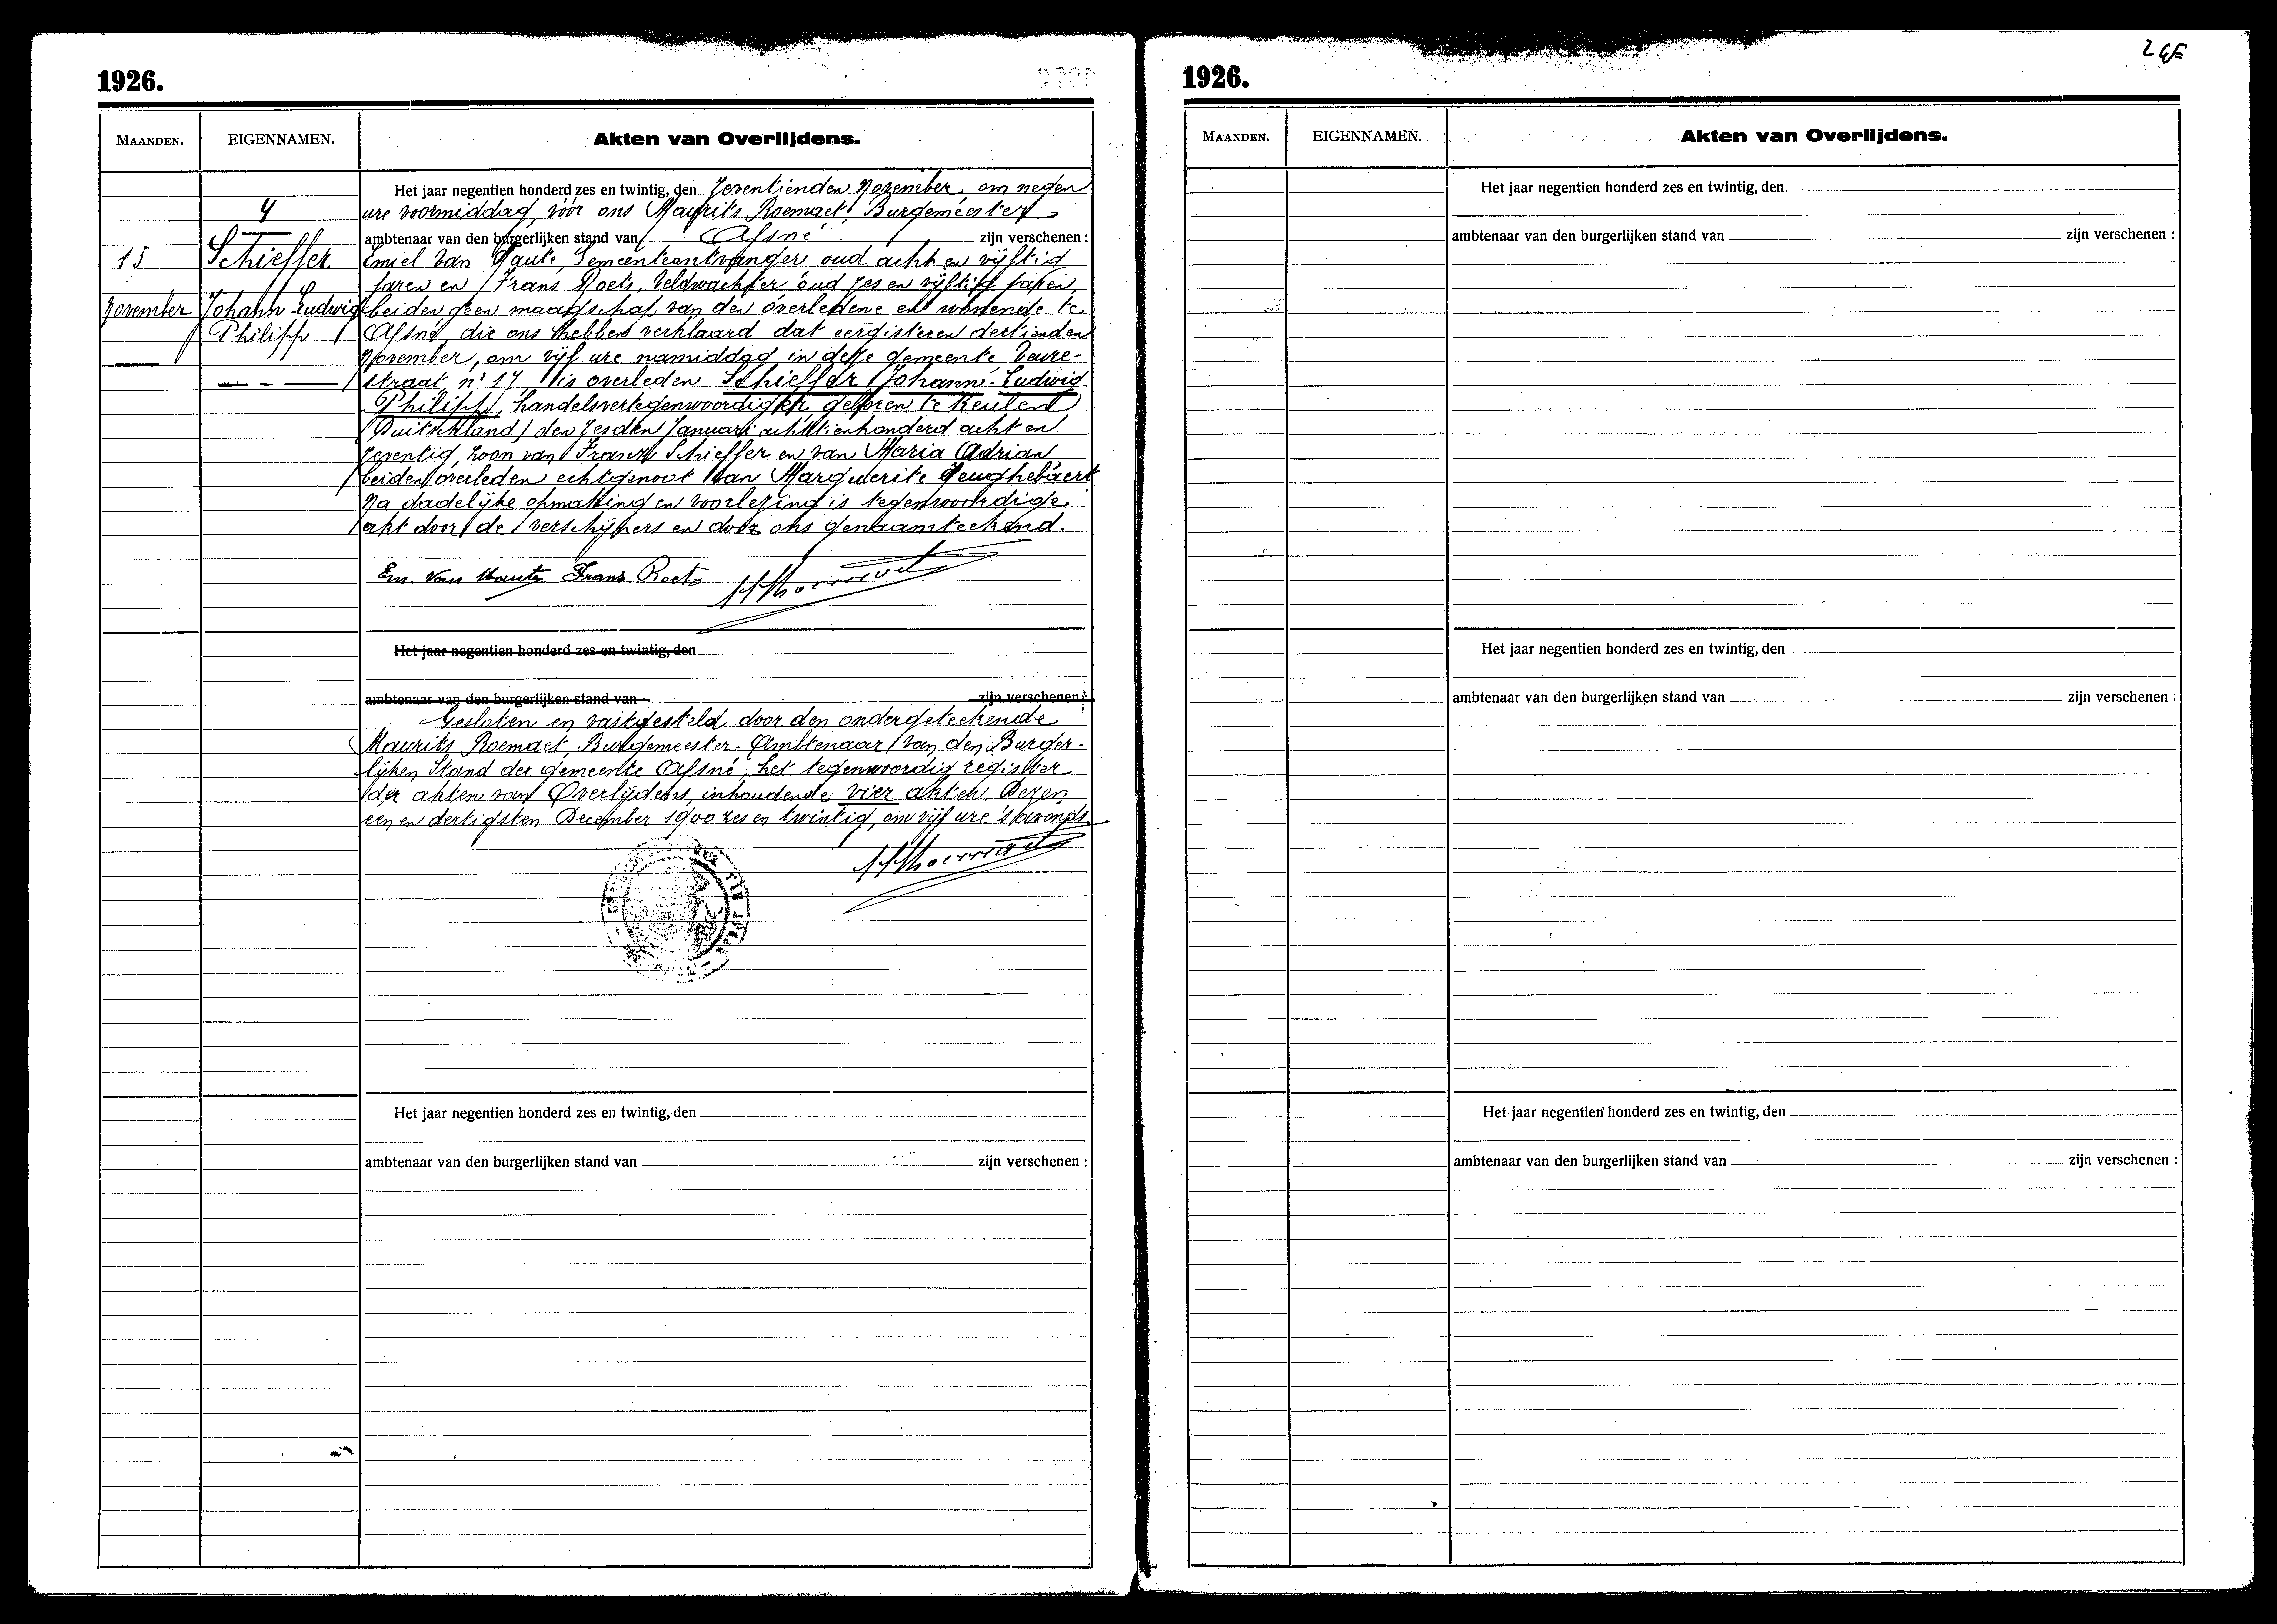 1926.
MAANDEN.
EIGENNAMEN.
Akten van Overlijdens.
4
15
Schieffer
November
Johann Ludwig
Philipp
Het jaar negentien honderd zes en twintig, den Zeventienden November, om negen
ure voormiddag, vóór ons Maurits Roemaet, Burgemeester
ambtenaar van den burgerlijken stand van Afsné zijn verschenen :
Emiel Van Haute, Gemeenteontvanger oud acht en vijftig
jaren en Frans Roets, Veldwachter oud zes en vijftig jaren,
beiden geen maagschap van den overledene en wonende te
Afsné, die ons hebben verklaard dat eergisteren dertienden
November, om vijf ure namiddag in deze gemeente, Veure-
straat n° 17, is overleden Schieffer Johann-Ludwig
Philipp, handelsvertegenwoordiger, geboren te Keulen
(Duitschland) den zesden Januari achttienhonderd acht en
zeventig, zoon van Franz Schieffer en van Maria Adrian
beiden overleden echtgenoot van Marguerite Teughebaert
Na dadelijke opmaking en voorlezing is tegenwoordige
akt door de verschijners en door ons genaamteekend.
Em. Van Haute Frans Roets
Het jaar negentien honderd zes en twintig, den
ambtenaar van den burgerlijken stand van zijn verschenen :
Gesloten en vastgesteld door den ondergeteekende
Maurits Roemaet, Burgemeester-Ambtenaar van den Burger-
lijken Stand der gemeente Afsné, het tegenwoordig register
der akten van Overlijdens, inhoudende vier akten. Dezen
een en dertigsten December 1900 zes en twintig, om vijf ure 's avonds.
Het jaar negentien honderd zes en twintig, den
ambtenaar van den burgerlijken stand van zijn verschenen :
1926.
MAANDEN.
EIGENNAMEN.
Akten van Overlijdens.
Het jaar negentien honderd zes en twintig, den
ambtenaar van den burgerlijken stand van zijn verschenen :
Het jaar negentien honderd zes en twintig, den
ambtenaar van den burgerlijken stand van zijn verschenen :
Het jaar negentien honderd zes en twintig, den
ambtenaar van den burgerlijken stand van zijn verschenen :